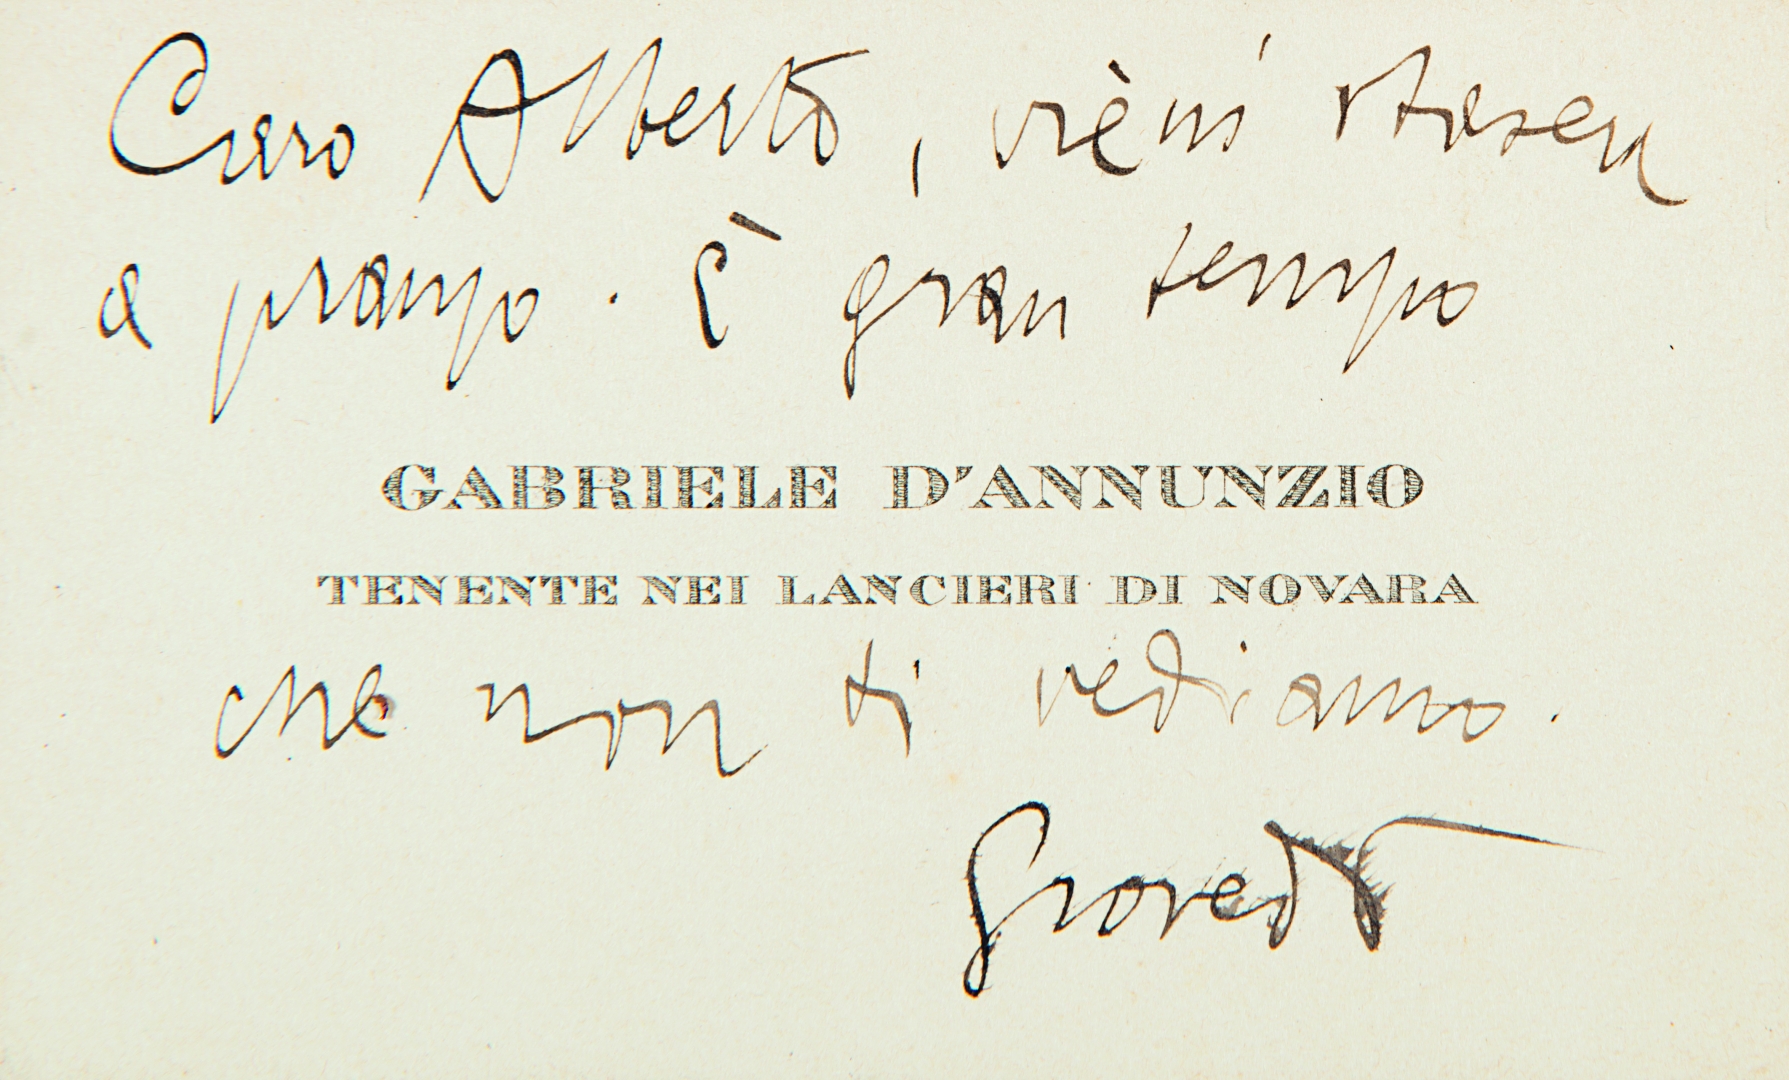 Caro Alberto, vièni stasera
a pranzo. È gran tempo
GABRIELE D'ANNUNZIO
TENENTE NEI LANCIERI DI NOVARA
che non ti vediamo.
Giovedì